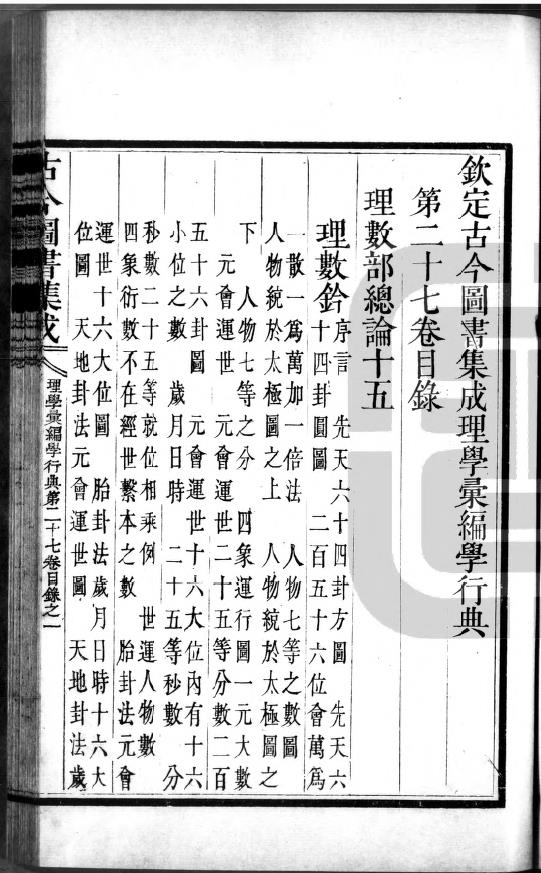 欽定古今圖書集成理學彙編學行典
第二十七卷目錄
理數部總論十五
理數鈐
序言　先天六十四卦方圖　先天六
十四卦圓圖　二百五十六位會萬爲
一散一爲萬加一倍法　人物七等之數圖
人物統於太極圖之上　人物統於太極圖之
下　人物七等之分　四象運行圖一元大數
元會運世　元會運世二十五等分數二百
五十六卦圖　元會運世十六大位內有十六
小位之數　歲月日時　二十五等秒數　分
秒數二十五等就位相乘例　世運人物數
四象衍數不在經世繫本之數　胎卦法元會
運世十六大位圖　胎卦法歲月日時十六大
位圖　天地卦法元會運世圖　天地卦法歲
古今圖書集成
理學彙編學行典第二十七卷目錄之一